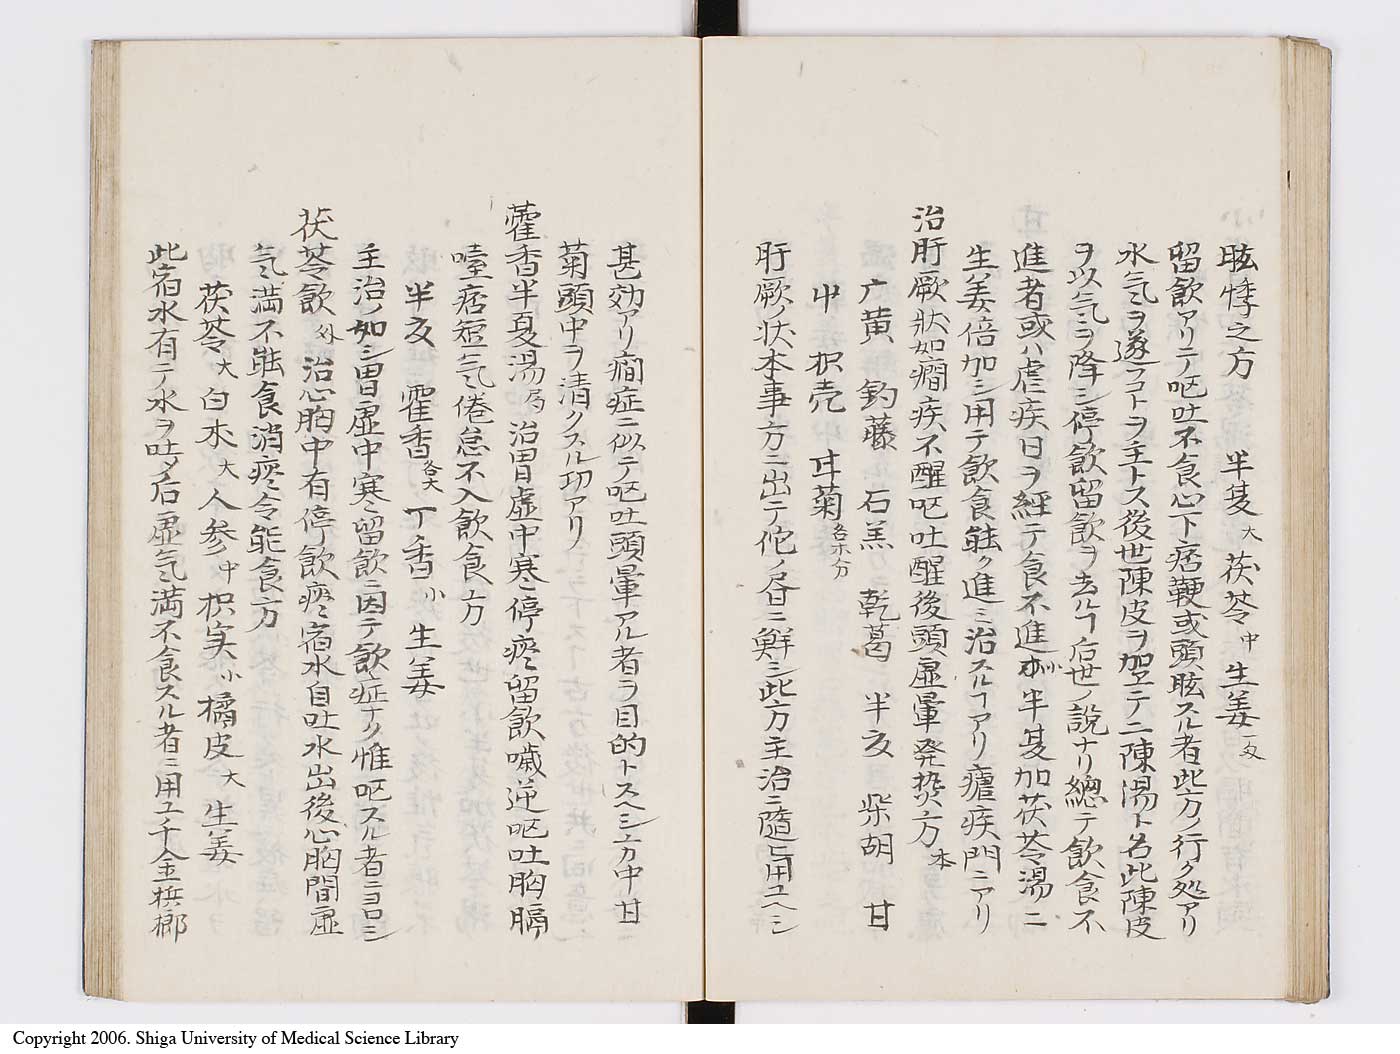 眩悸之方 半夏大 茯苓中 生姜
留飲アリテ呕吐不食心下痞鞕或頭眩スル者此方ノ行ク処アリ
水气ヲ逐フコトヲ主トス後世陳皮ヲ加エテ二陳湯ト名此陳皮
ヲ以气ヲ降シ停飲留飲ヲ去ルフ后世ノ説ナリ總テ飲食不
進者或ハ虐疾日ヲ經テ食不進ニハ小半夏加茯苓湯ニ
生姜倍加シ用テ飲食能ク進ミ治スルフアリ瘧疾門ニアリ
治肝厥状如癇疾不醒呕吐醒後頭虚暈発熱方 本
广黄 釣藤 石羔 乾葛 半夏 柴胡 甘
中 枳壳中 甘菊各等分
肝厥ノ状本事方ニ出テ佗ノ昼ニ鮮シ此方主治ニ隨ヒ用ユヘシ
甚効アリ癇症ニ似テ呕吐頭暈アル者ヲ目的トスヘシ方中甘
菊頭中ヲ清クスル功アリ
藿香半夏湯局 治胃虚中寒停痰留飲噦逆呕吐胸膈
噎痞短气倦怠不入飲食方
半夏 藿香各大 丁香小 生姜
主治ノ如シ胃虚中寒留飲ニ因テ飲症ナク惟呕スル者ニヨロシ
茯苓飲外 治心胸中有停飲痰宿水自吐水出後心胸間虚
气満不能食消痰令能食方
茯苓大 白朮大 人参中 枳実小 橘皮大 生姜
此宿水有テ水ヲ吐メ后虚气満不食スル者ニ用ユ千金檳榔
Copyright 2006. Shiga University of Medical Science Library